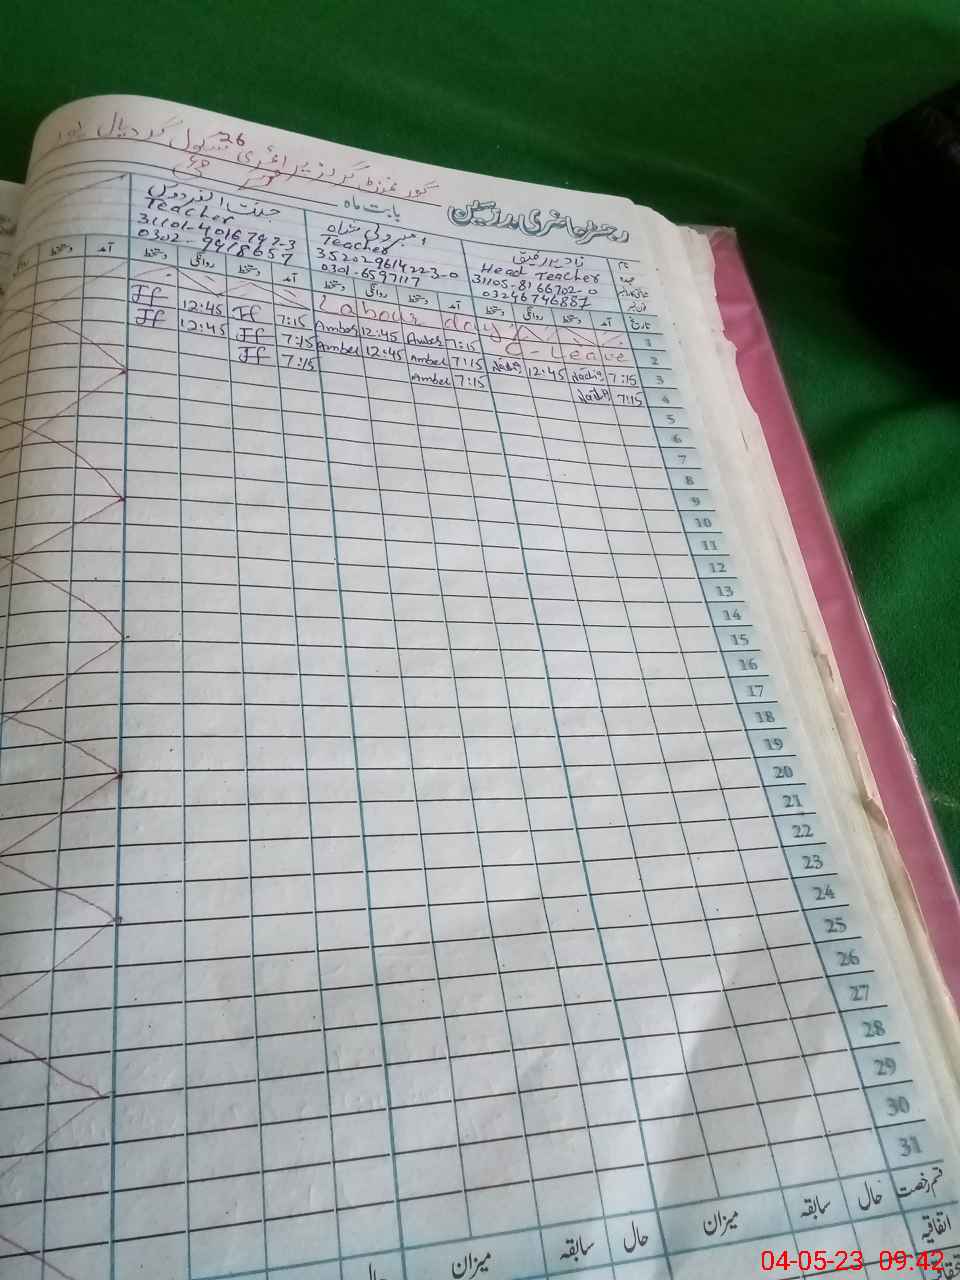 گورنمنٹ گرلز پرائمری سکول گردیال پور
26
رجسٹر حاضری مدرسین
بابت ماہ
نام
نادیہ رفیق
Head Teacher
31105-8166702-0
03246746887
Teacher
35202-9614223-0
0301-6597117
جنت الفردوس
Teacher
31101-4016797-3
0302-9418657
تاریخ آمد دستخط روانگی دستخط آمد دستخط روانگی دستخط آمد دستخط روانگی دستخط آمد دستخط
1 Labour day
2 C-Leave 7:15 Amber 12:45 Amber 7:15 Jf 12:45 Jf
3 7:15 Nadia 12:45 Nadia 7:15 Amber 12:45 Amber 7:15 Jf 12:45 Jf
4 7:15 Nadia 7:15 Amber 7:15 Jf
5
6
7
8
9
10
11
12
13
14
15
16
17
18
19
20
21
22
23
24
25
26
27
28
29
30
31
قسم رخصت حال سابقہ میزان حال سابقہ میزان حال
اتفاقیہ
04-05-23 09:42